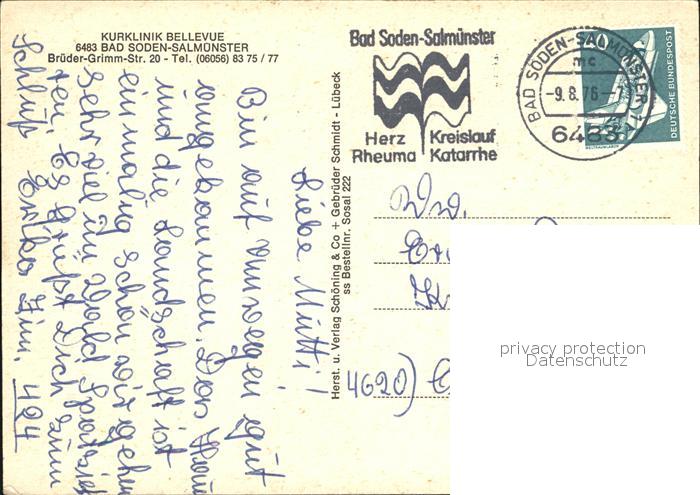 KURKLINIK BELLEVUE
6483 BAD SODEN-SALMÜNSTER
Brüder-Grimm-Str. 20 - Tel. (06056) 83 75 / 77
Bad Soden-Salmünster
Herz Kreislauf
Rheuma Katarrhe
BAD SODEN-SALMÜNSTER 1
mc
-9.8.76-
6483
DEUTSCHE BUNDESPOST
WELTRAUMLABOR
Herst. u. Verlag Schöning & Co + Gebrüder Schmidt - Lübeck
ss Bestellnr. Sosal 222
Liebe Mutti!
Bin auf Umwegen gut
angekommen. Das Haus
und die Landschaft ist
einmalig schön wir gehen
sehr viel im Wald spazieren
Es grüßt Dich zum
Schluß
Erika Zim. 424
4620)
privacy protection
Datenschutz